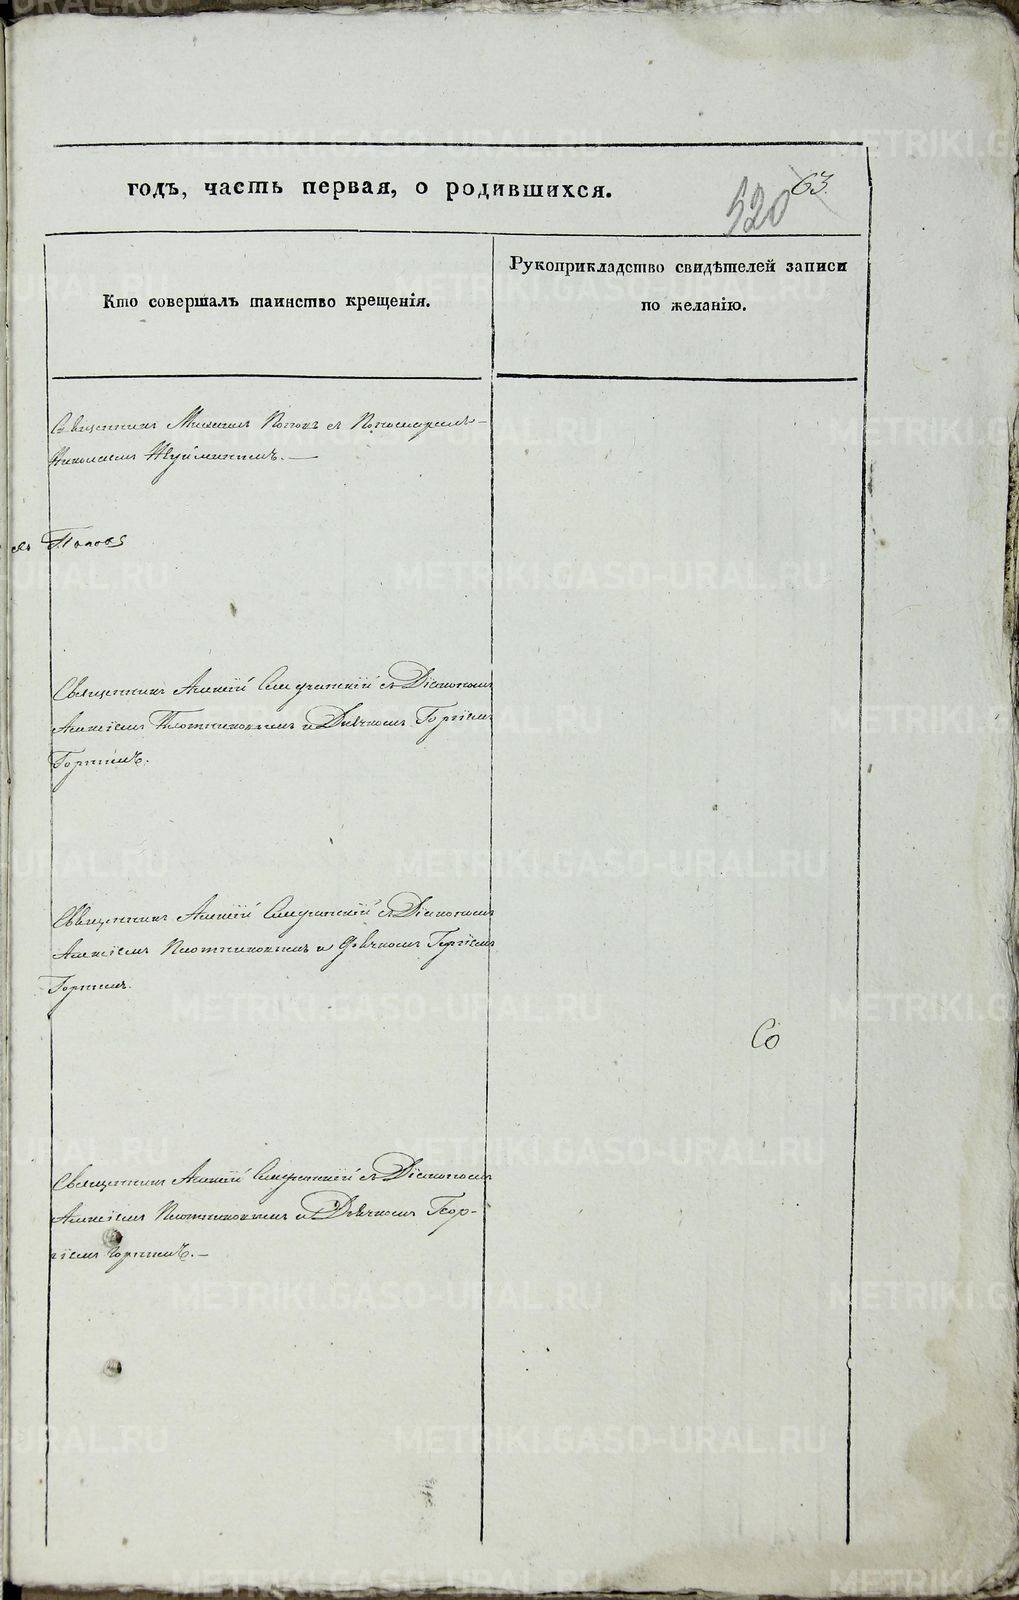 годъ, часть первая, о родившихся.
520 63.
Кто совершалъ таинство крещенія.
Рукоприкладство свидѣтелей записи
по желанію.
Священникъ Михаилъ Поповъ съ Пономаремъ
Николаемъ
Поповъ
Священникъ Алексій съ Діакономъ
Алексіемъ Плотниковымъ и Дьячкомъ Георгіемъ
Горнымъ.
Священникъ Алексій съ Діакономъ
Алексіемъ Плотниковымъ и Дьячкомъ Георгіемъ
Горнымъ.
Со
Священникъ Алексій съ Діакономъ
Алексіемъ Плотниковымъ и Дьячкомъ Геор-
гіемъ Горнымъ.—
METRIKI.GASO-URAL.RU